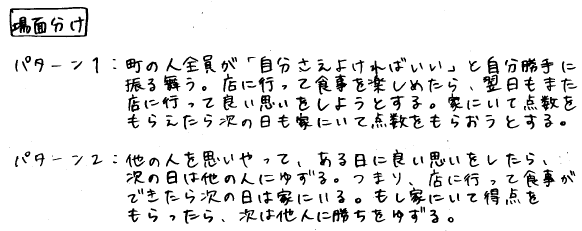 場面分け
パターン1：町の人全員が「自分さえよければいい」と自分勝手に
振る舞う。店に行って食事を楽しめたら、翌日もまた
店に行って良い思いをしようとする。家にいて点数を
もらえたら次の日も家にいて点数をもらおうとする。
パターン2：他の人を思いやって、ある日に良い思いをしたら、
次の日は他の人にゆずる。つまり、店に行って食事が
できたら次の日は家にいる。もし家にいて得点を
もらったら、次は他人に勝ちをゆずる。